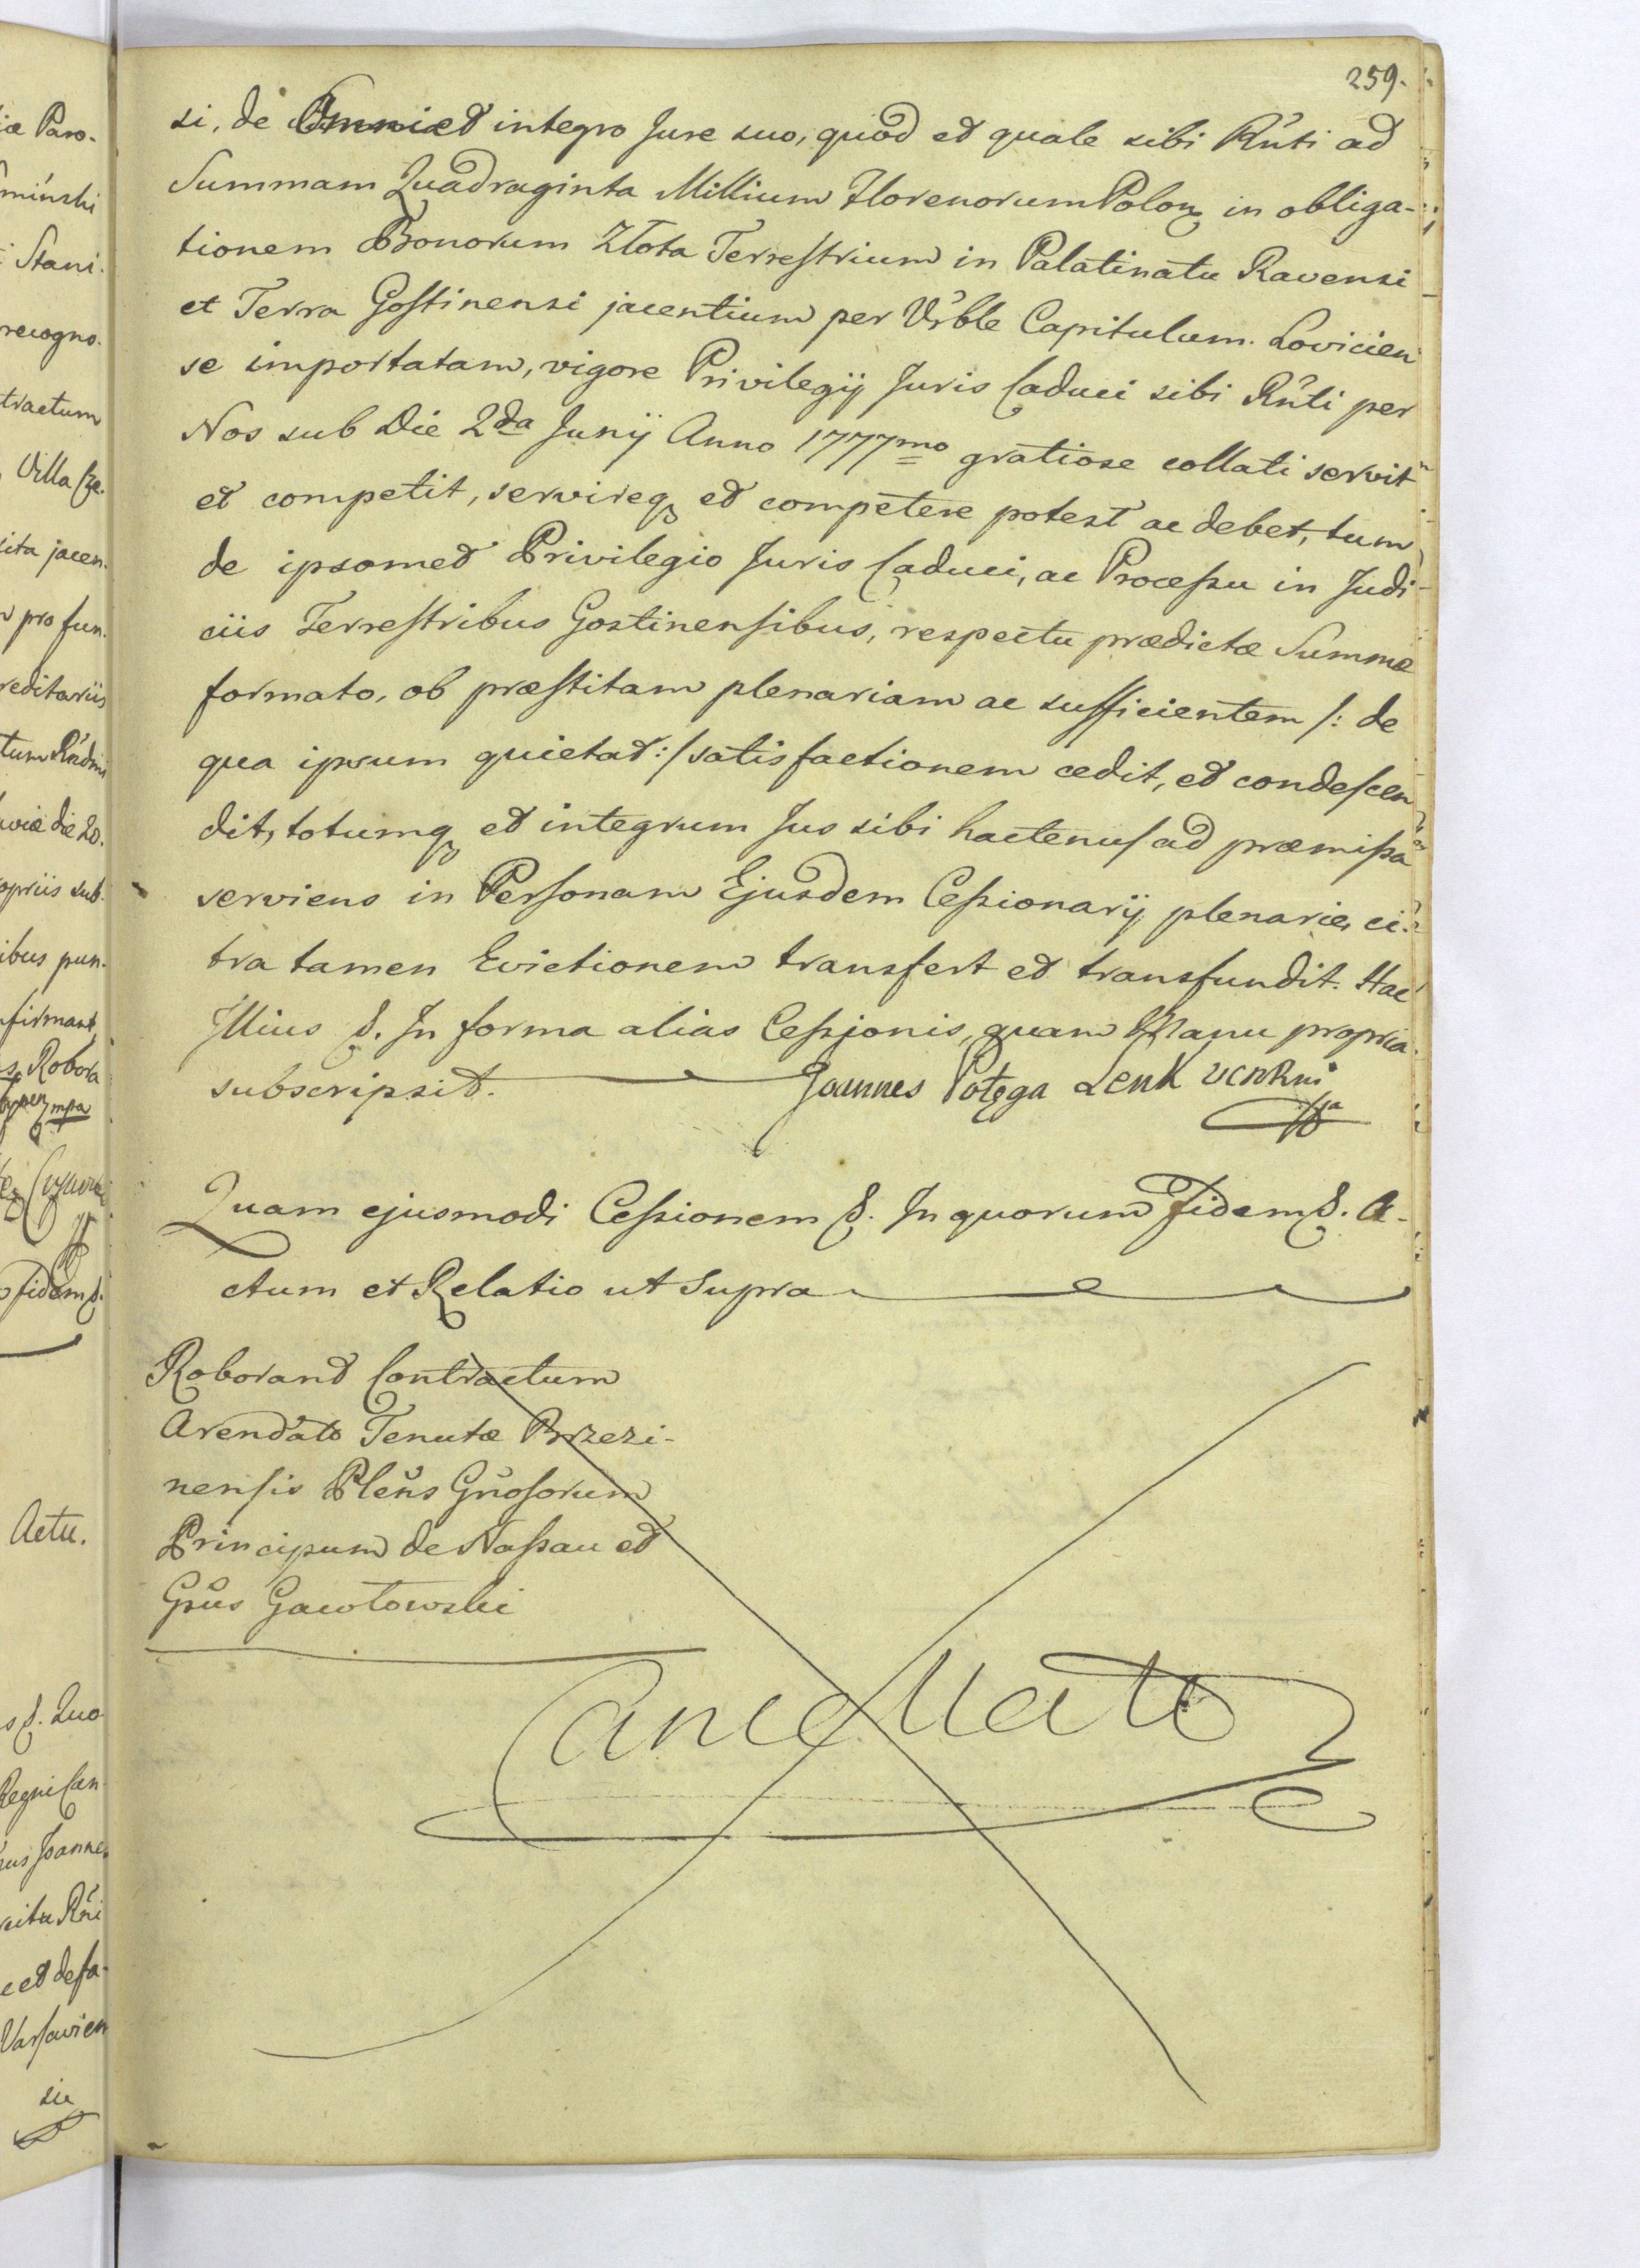 259.
si, de Omni et integro Jure suo, quod et quale sibi Rńti ad
Summam Quadraginta Millium Florenorum Polonq in obliga-
tionem Bonorum Złota Terrestrium in Palatinatu Ravensi
et Terra Gostinensi jacentium per Vrble Capitulum Lovicien
se importatam, vigore Privilegij Juris Caduci sibi Rńti per
Nos sub Die 2da Junij Anno 1777mo gratiose collati servit
et competit, servireq et competere potest ac debet, tum
de ipsomet Privilegio Juris Caduci, ac Processu in Judi-
ciis Terrestribus Gostinensibus, respectu prædictæ Summæ
formato, ob præstitam plenariam ac sufficientem /: de
qua ipsum quietat :/ satisfactionem cedit, et condescen
dit, totumq et integrum Jus sibi hactenus ad præmissa
serviens in Personam Ejusdem Cessionarij plenarie, ci-
tra tamen Evictionem transfert et transfundit. Hac
Illius &. In forma alias Cessionis, quam Manu propria
subscripsit. Joannes Potęga
Quam ejusmodi Cessionem &. In quorum Fidem &. A-
ctum et Relatio ut Supra
Roborand Contractum
Arendato Tenutæ Brzezi-
nensis Pleńs Gńosorum
Principum de Nassau et
Gsus Gawłowski
Cancellato
iæ Paro-
mínski
Stani-
recogno-
tractum
Villa
sita jacen-
pro fun-
reditariis
tum Rńdmi
die 20.
opriis sub-
ibus pun-
firmant,
Robora
mpa
Fidem &.
Actu.
s &. Quo
Regni Can
us Joannes
et defa-
Varsavien
sie